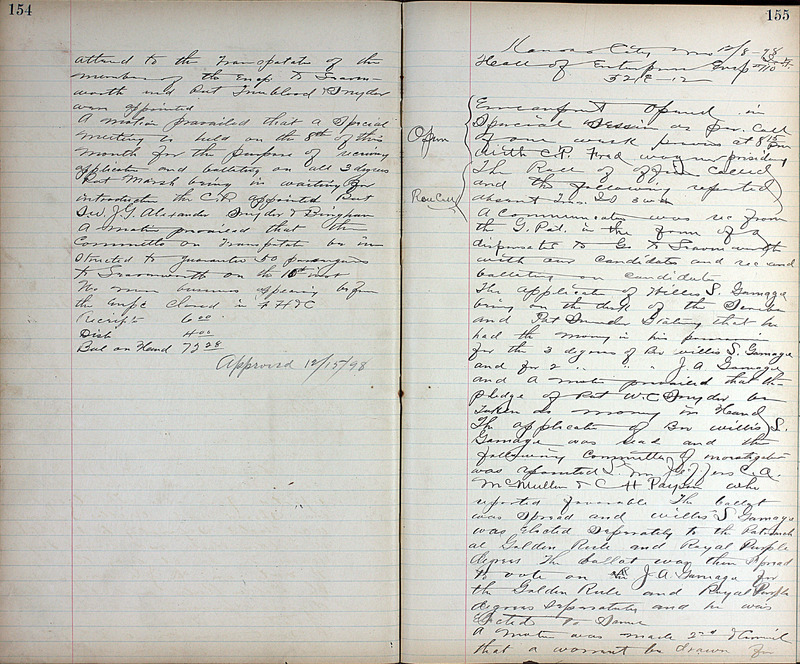 154
attend to the Transpotation of the
member of the Encp to Leaven-
worth and Pat Trueblood & Snyder
were appointed
A motion prevailed that a Special
meeting be held on the 8th of this
month for the purpose of receiving
application and balloting on all 3 degrees
Pat Marsh being in waiting for
introduction the C.P. appointed Past
J.G. Alexander Snyder & Bingham
A motion prevailed that the
Committee on Transpotate be in
structed to guarantee 50 passengers
to Leavenworth on the 10th inst
No more business appearing before
the Encpt closed in F H & C
Receipts 6 00
Disb 4 00
Bal on Hand 73 28
Approved 12/15/98
155
Kansas City Mo 12/8-98
Hall of Enterprise Encp
Encampment opened in
Open
Special Session as per call
at 8 15 pm
with C.P. Fred presiding
The Roll of officers called
Roll Call
and the following reported
absent
A Communication was rec from
the G. Pat. in the form of a
dispensate to Go to Leavenworth
with our candidates and rec and
balloting on candidate
The applicate of Willis S. Gamage
being on the desk of the Scribe
and Pat Snyder Stating that he
had the money in his possession
for the 3 degrees of Bro Willis S. Gamage
and for 2 " " J A Gamage
and a motion prevailed that the
pledge of Pat W C Snyder be
Taken as money in Hand
The applicate of Bro Willis S.
Gamage was read and the
following Committee of investigate
was appointed C. A.
McMullen & C H Payson who
reported favorable The ballot
was Spread and Willis S Gamage
was Elected Seperately to the Patriarch
al Golden Rule and Royal Purple
degrees The ballot was then Spread
to vote on J A Gamage for
the Golden Rule and Royal Purple
degrees Seperately and he was
Elected to Same
A motion was made 2nd & Carried
that a warrant be drawn for